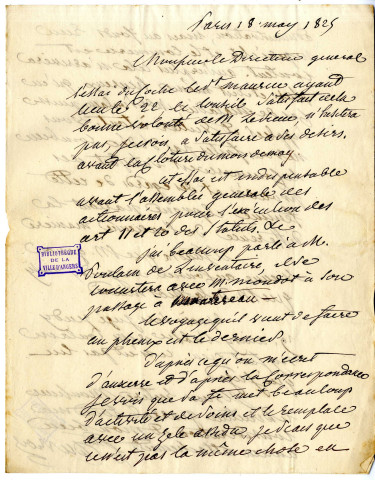 Paris 18 may 1825
Monsieur le Directeur general
l'essai du foche le Sr maurice ayant
lieu le 22 le conseil satisfait de la
bonne volonté de M. n'hesitera
pas, pensons a satisfaire a des desirs
avant la Cloture du mois de may
Cet essai est indispensable
avant l'assemblée generale des
actionnaires pour l'execution des
art 11 et 16 des Statuts. &c
j'ai beaucoup parlé a M.
Poulain de
avec M. mondot a son
passage a
le voyage qu'il vient de faire
au phenix est le dernier
d'après ce qu'on m'ecrit
d'auxerre et d'après la Correspondance
je vois que met beaucoup
d'activité et de soins et le remplace
avec un zele assidu je sais que
ce n'est pas la même chose en
BIBLIOTHÈQUE
DE LA
VILLE D'ANGERS